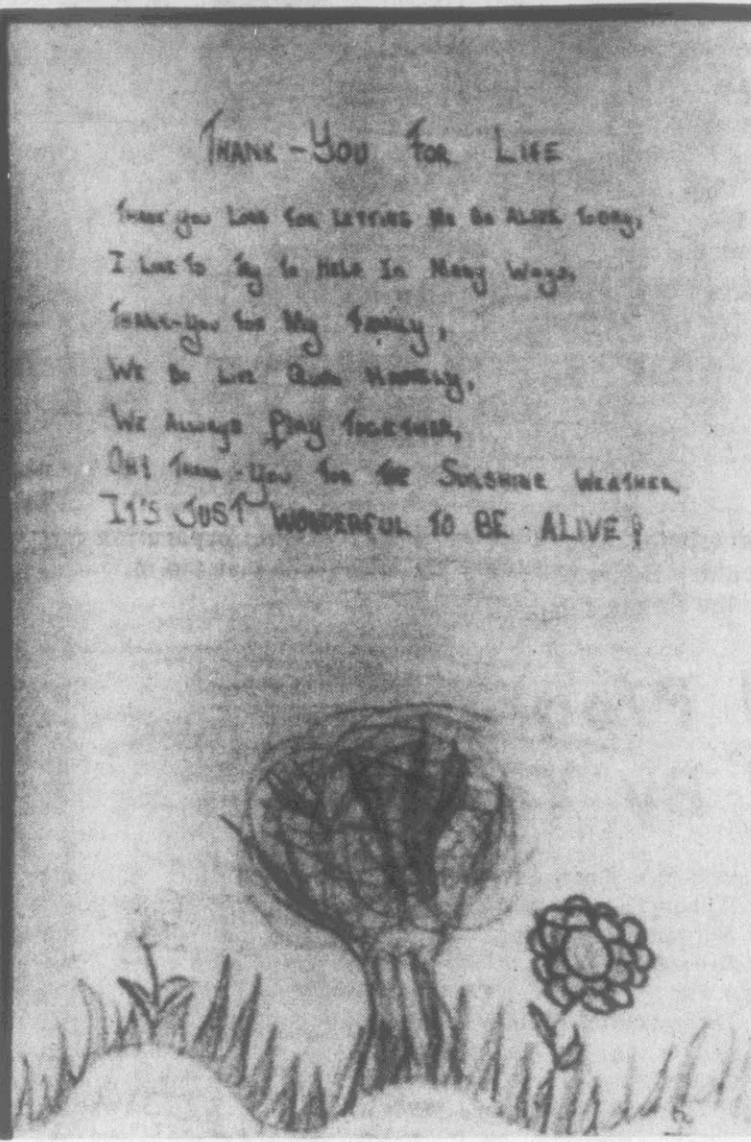 THANK-YOU FOR LIFE
THANK you LORD FOR LETTING Me Be ALIVE TODAY,
I LIKE To Try To HELP In Many Ways,
THANK-You For My FAMILY,
WE Do LIVE QUITE HAPPILY,
WE ALWAYS Play TOGETHER,
OH! THANK-You For THE SUNSHINE WEATHER,
IT'S JUST WONDERFUL TO BE ALIVE!